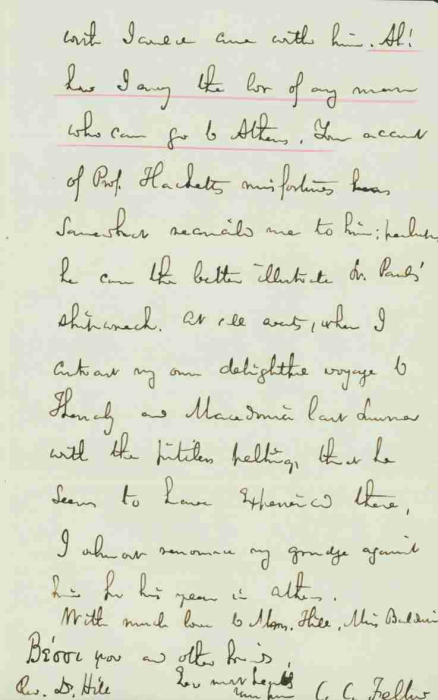 with
with him. Ah!
how I envy the lot of any man
who can go to Athens. Your account
of Prof. Hacketts misfortunes has
Somewhat reconciled me to him; perhaps
he can the better illustrate St. Pauls'
shipwreck. At all events, when I
contrast my own delightful voyage to
Thessaly and Macedonia last Summer
with the pitiless peltings that he
seems to have Experienced there,
I almost renounce my grudge against
him for his year in Athens.
With much love to Mrs. Hill, Miss Baldwin
Βέσσι μου and other friends,
Rev. Dr. Hill
C. C. Felton